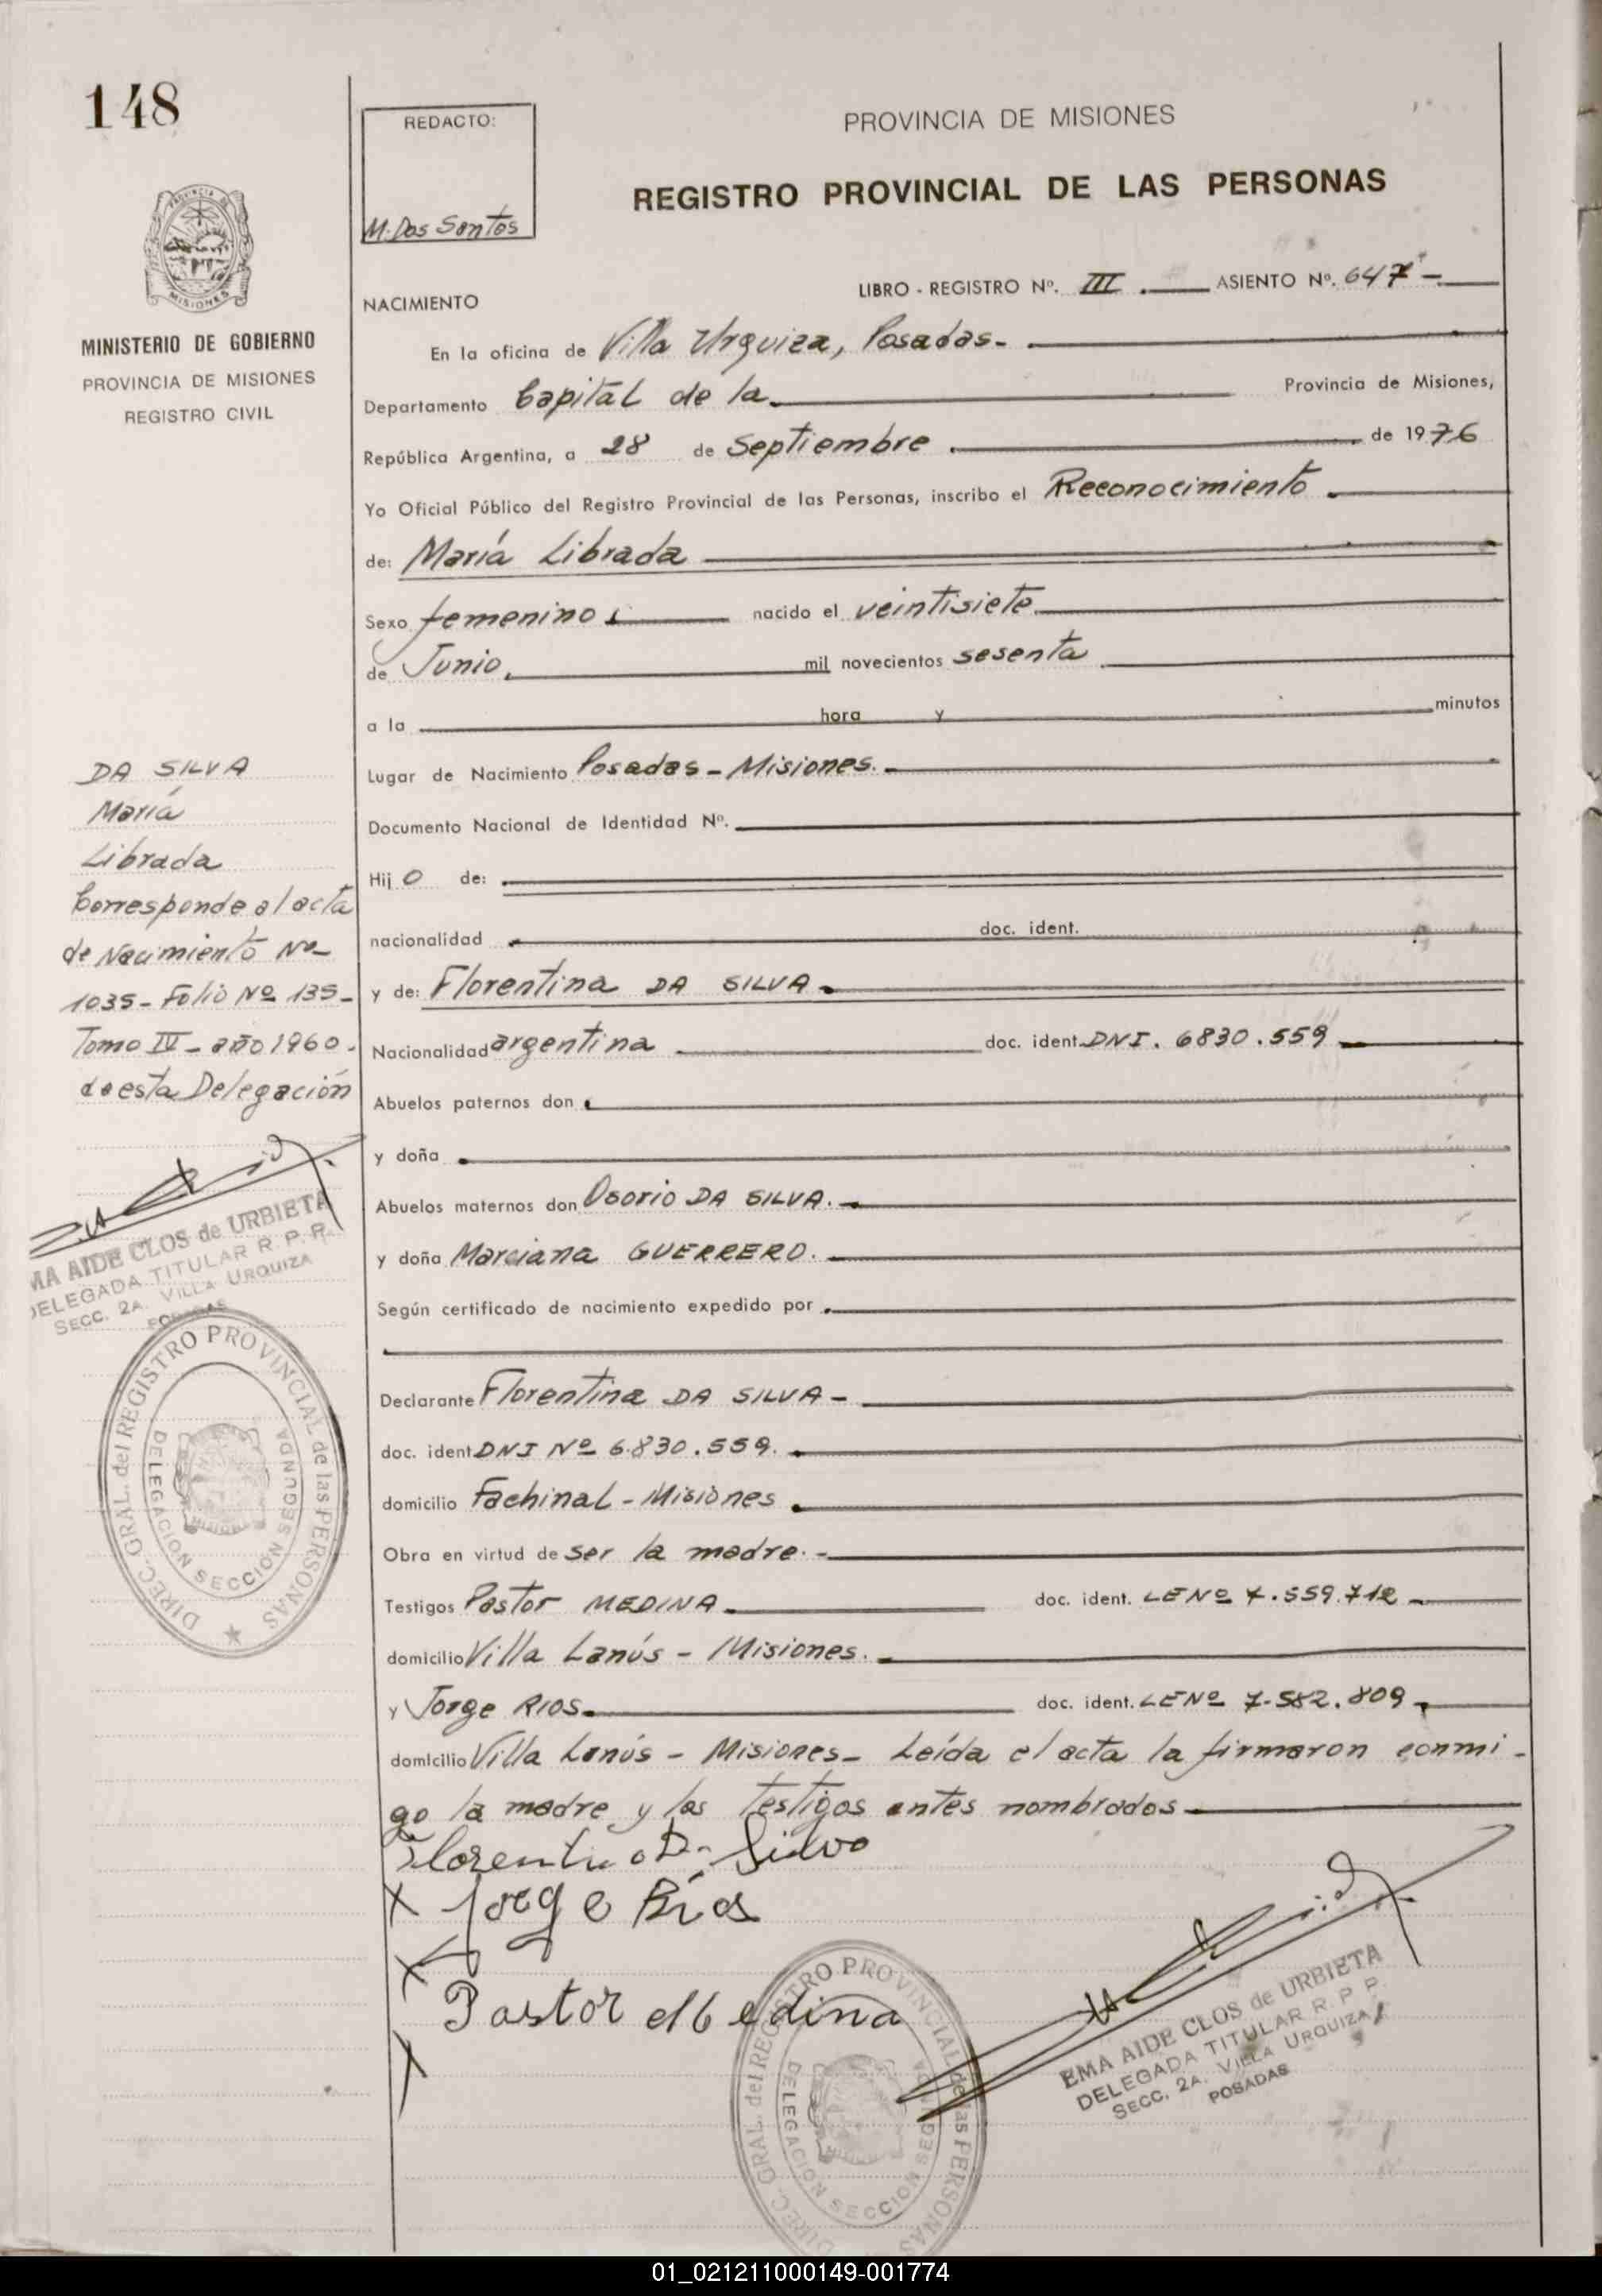 148
REDACTO:
M. Dos Santos
PROVINCIA DE MISIONES
REGISTRO PROVINCIAL DE LAS PERSONAS
PROVINCIA
MISIONES
MINISTERIO DE GOBIERNO
PROVINCIA DE MISIONES
REGISTRO CIVIL
LIBRO - REGISTRO Nº. III. ASIENTO Nº. 647-
NACIMIENTO
En la oficina de Villa Urquiza, Posadas.-
Departamento Capital de la Provincia de Misiones,
República Argentina, a 28 de Septiembre de 1976
Yo Oficial Público del Registro Provincial de las Personas, inscribo el Reconocimiento
de: María Librada
Sexo femenino nacido el veintisiete
de Junio, mil novecientos sesenta
a la hora y minutos
Lugar de Nacimiento Posadas - Misiones.
Documento Nacional de Identidad Nº.
Hij o de:
nacionalidad doc. ident.
y de: Florentina DA SILVA
Nacionalidad argentina doc. ident. DNI. 6830.559
Abuelos paternos don
y doña
Abuelos maternos don Osorio DA SILVA.
y doña Marciana GUERRERO.
Según certificado de nacimiento expedido por
Declarante Florentina DA SILVA -
doc. ident DNI Nº 6.830.559.
domicilio Fachinal - Misiones
Obra en virtud de ser la madre. -
Testigos Pastor MEDINA doc. ident. LE Nº 7.559.712
domicilio Villa Lanús - Misiones.
y Jorge RIOS. doc. ident. LE Nº 7.582.809
domicilio Villa Lanús - Misiones - Leída el acta la firmaron conmi-
go la madre y los Testigos antes nombrados
Florentina Da Silva
X Jorge Ríos
X
Pastor Medina
DA SILVA
María
Librada
Corresponde al acta
de Nacimiento Nº
1035 - Folio Nº 135 -
Tomo IV - año 1960 -
de esta Delegación
MA AIDE CLOS de URBIETA
DELEGADA TITULAR R. P. P.
SECC. 2A. VILLA URQUIZA
POSADAS
DIREC. GRAL. del REGISTRO PROVINCIAL de las PERSONAS
DELEGACION SECCION SEGUNDA
DIREC. GRAL. del REGISTRO PROVINCIAL de las PERSONAS
DELEGACION SECCION SEGUNDA
EMA AIDE CLOS de URBIETA
DELEGADA TITULAR R. P. P.
SECC. 2A. VILLA URQUIZA
POSADAS
01_021211000149-001774